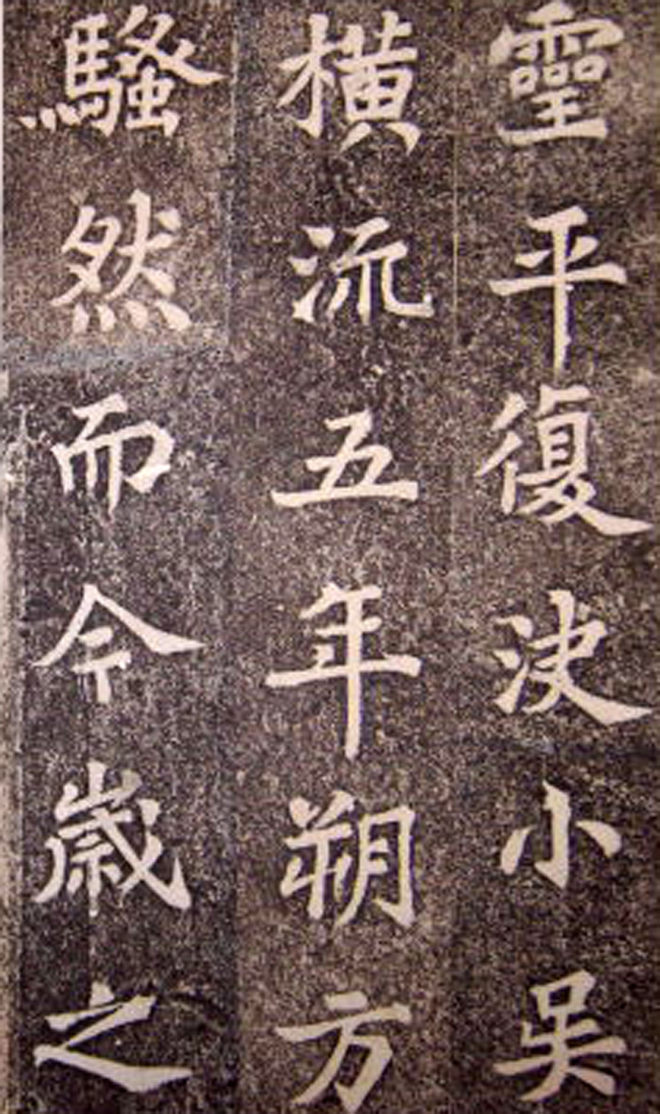 靈平復決小吴
橫流五年朔方
騷然而今歲之